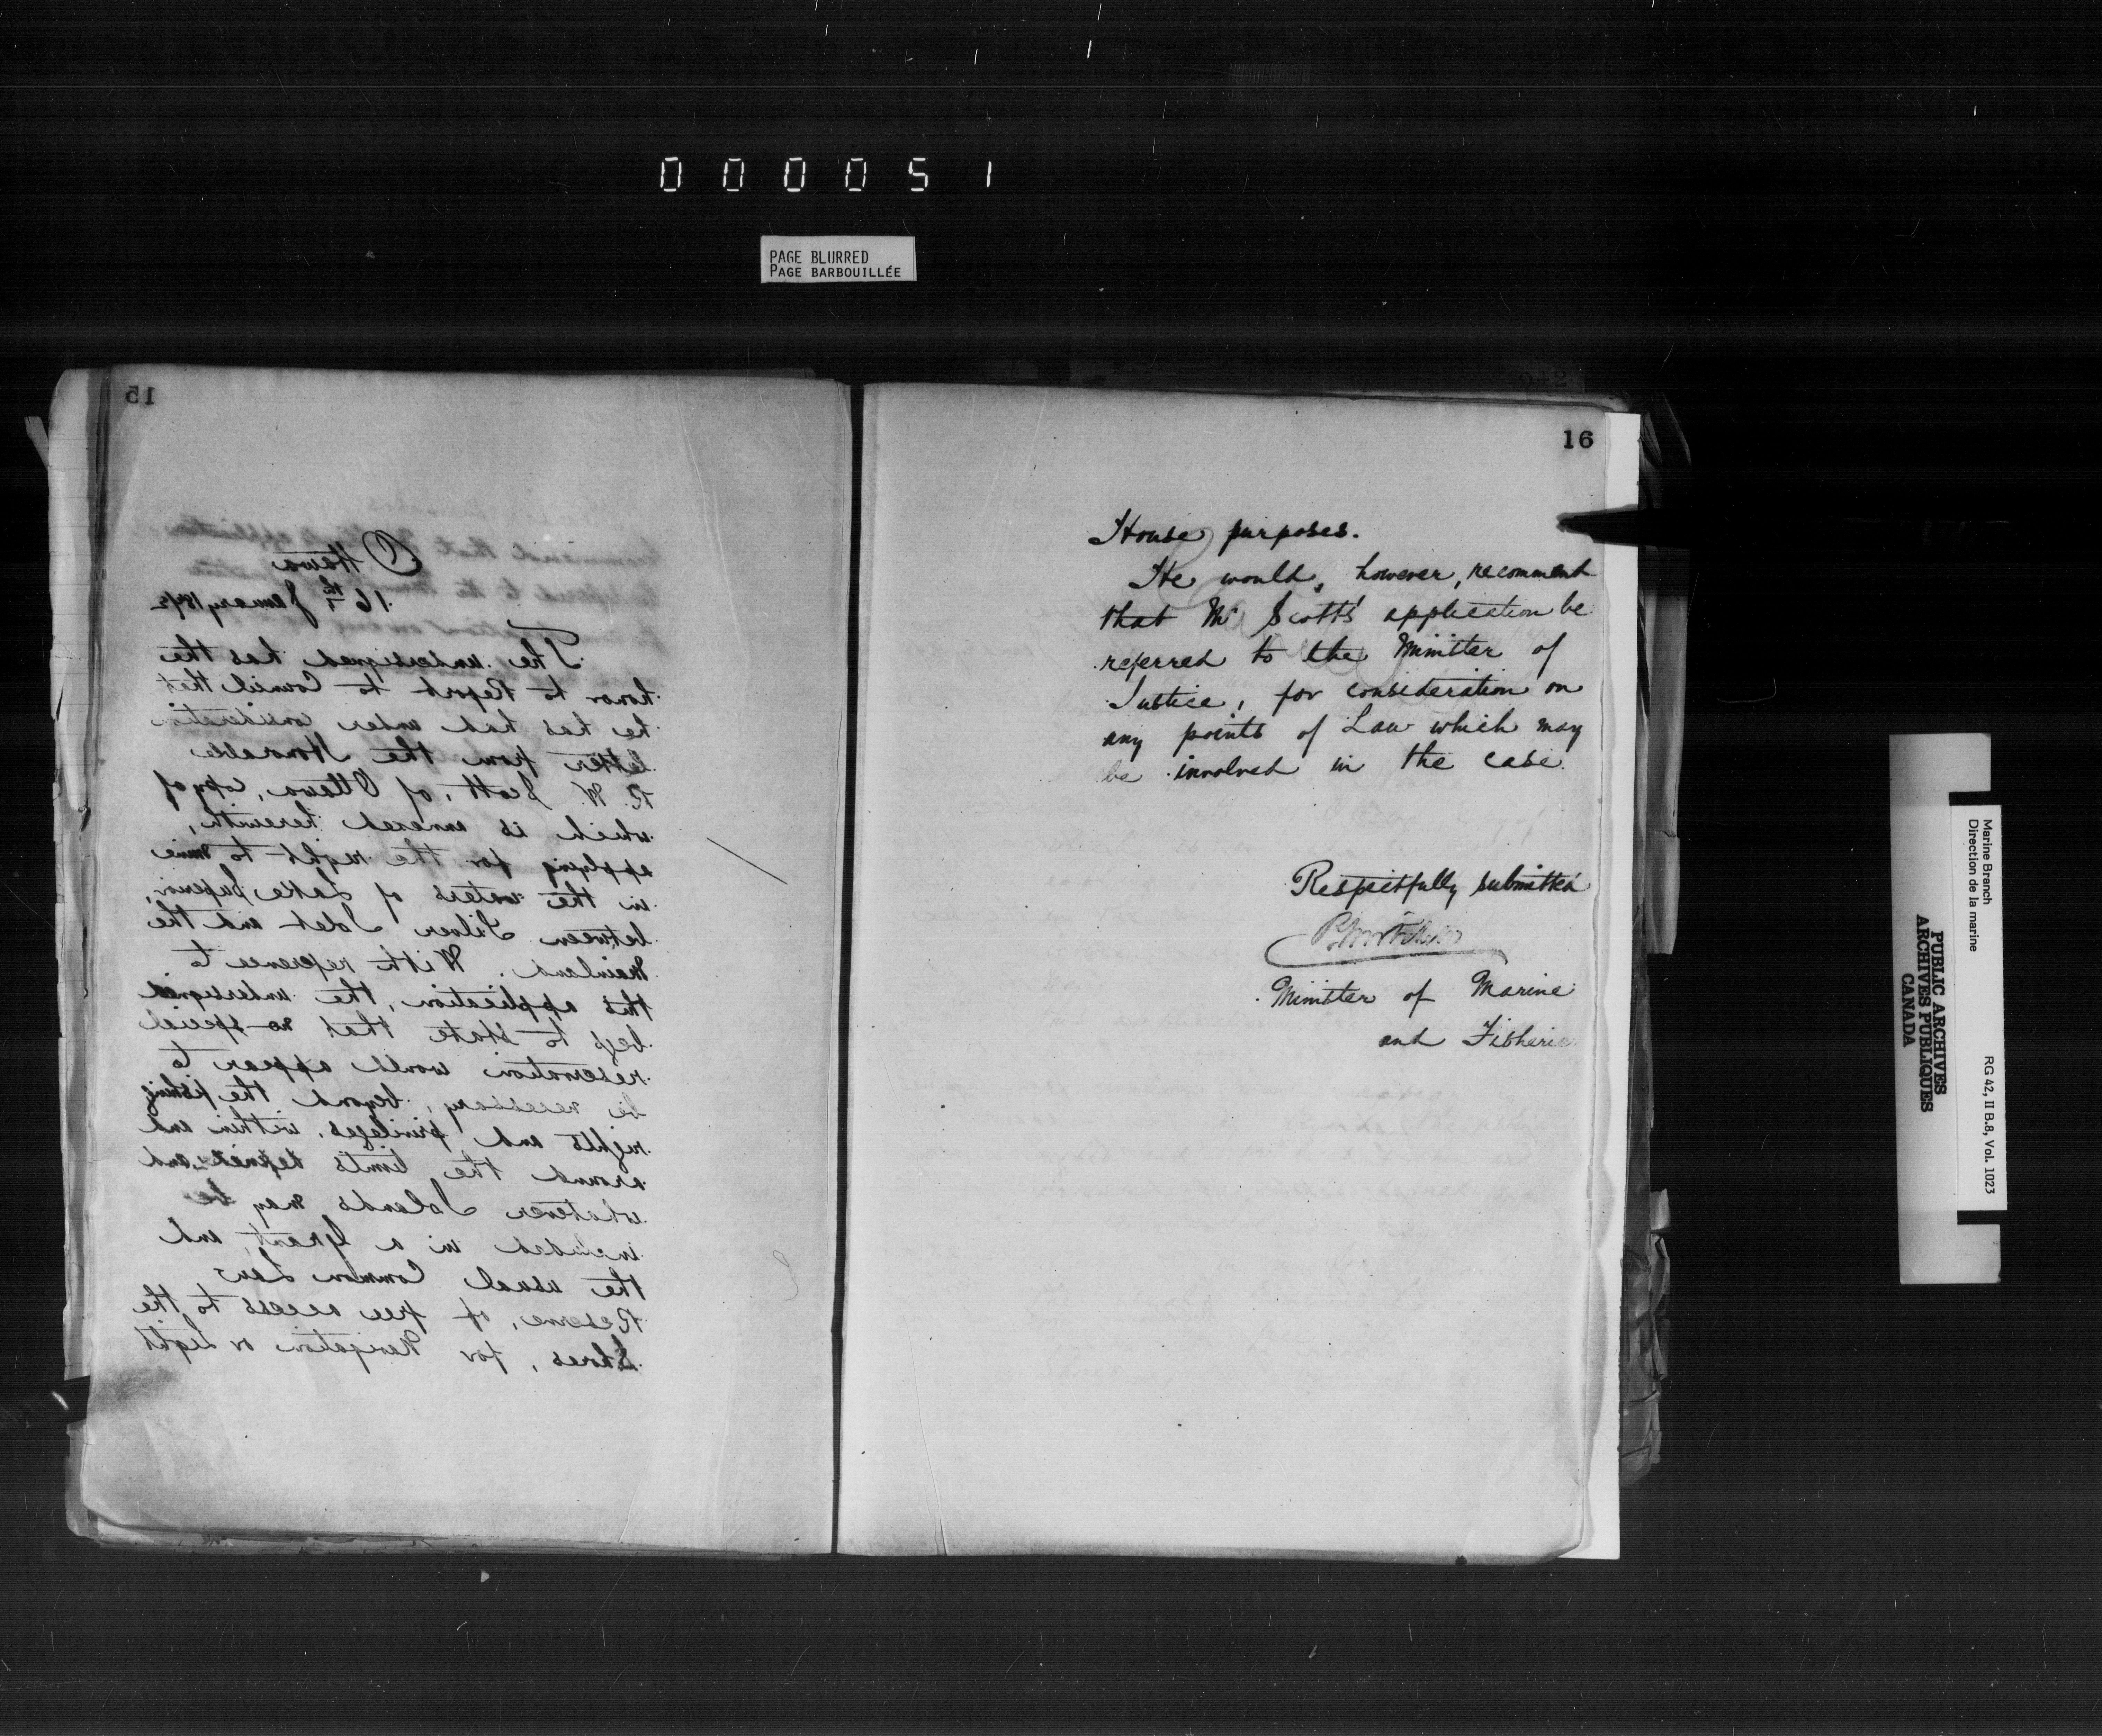 000051
PAGE BLURRED
PAGE BARBOUILLÉE
15
Ottawa
16th January 187
The undersigned has the
honor to Report to Council that
he has had under consideration
letter from the Honorable
R. W. Scott, of Ottawa, copy of
which is annexed herewith,
applying for the right to mine
in the waters of Lake Superior,
between Silver Islet and the
Mainland. With reference to
this application, the undersigned
begs to state that no special
reservation would appear to
be necessary, beyond the fishing
rights and privileges, within and
around the limits defined, and
whatever Islands may be
included in a Grant, and
the usual Common Law
Reserve, of free access to the
Shores, for Navigation or Light
942
16
House purposes.
He would, however, recommend
that Mr Scott's application be
referred to the Minister of
Justice, for consideration on
any points of Law which may
be involved in the case.
Respectfully submitted
Minister of Marine
and Fisheries
Marine Branch
Direction de la marine
RG 42, II B.8, Vol. 1023
PUBLIC ARCHIVES
ARCHIVES PUBLIQUES
CANADA